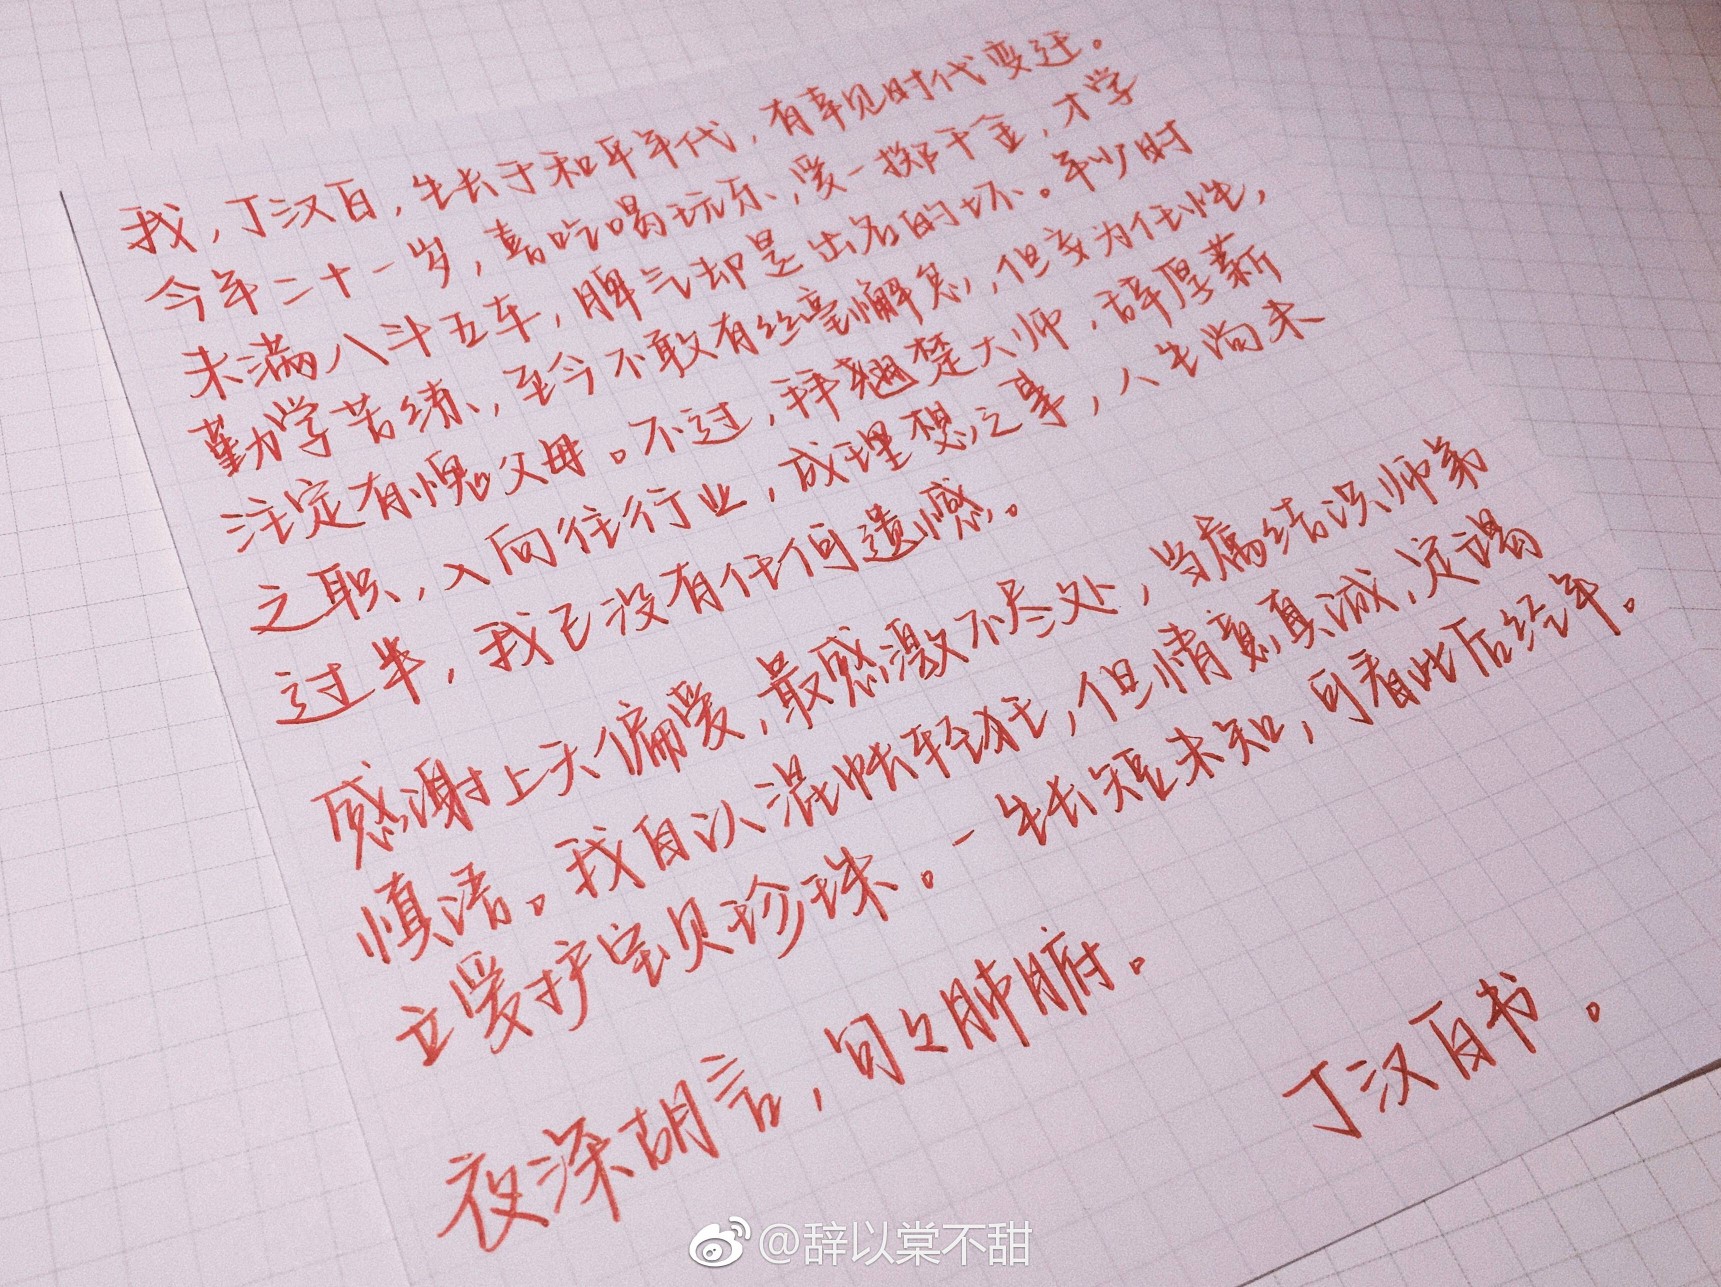 我,丁汉白,生长于和平年代,有幸见时代变迁。
今年二十一岁,喜吃喝玩乐,爱一掷千金,才学
未满八斗五车,脾气却是出名的坏。年少时
勤学苦练,至今不敢有丝毫懈怠,但妄为任性,
注定有愧父母。不过,拜翘楚大师,辞厚薪
之职,入向往行业,成理想之事,人生尚未
过半,我已没有任何遗憾。
感谢上天偏爱,最感激不尽处,当属结识师弟
慎语。我自认混帐轻狂,但情意真诚,定竭
立爱护宝贝珍珠。一生长短未知,可看此后经年。
夜深胡言,句々肺腑。
丁汉白书。
@辞以棠不甜